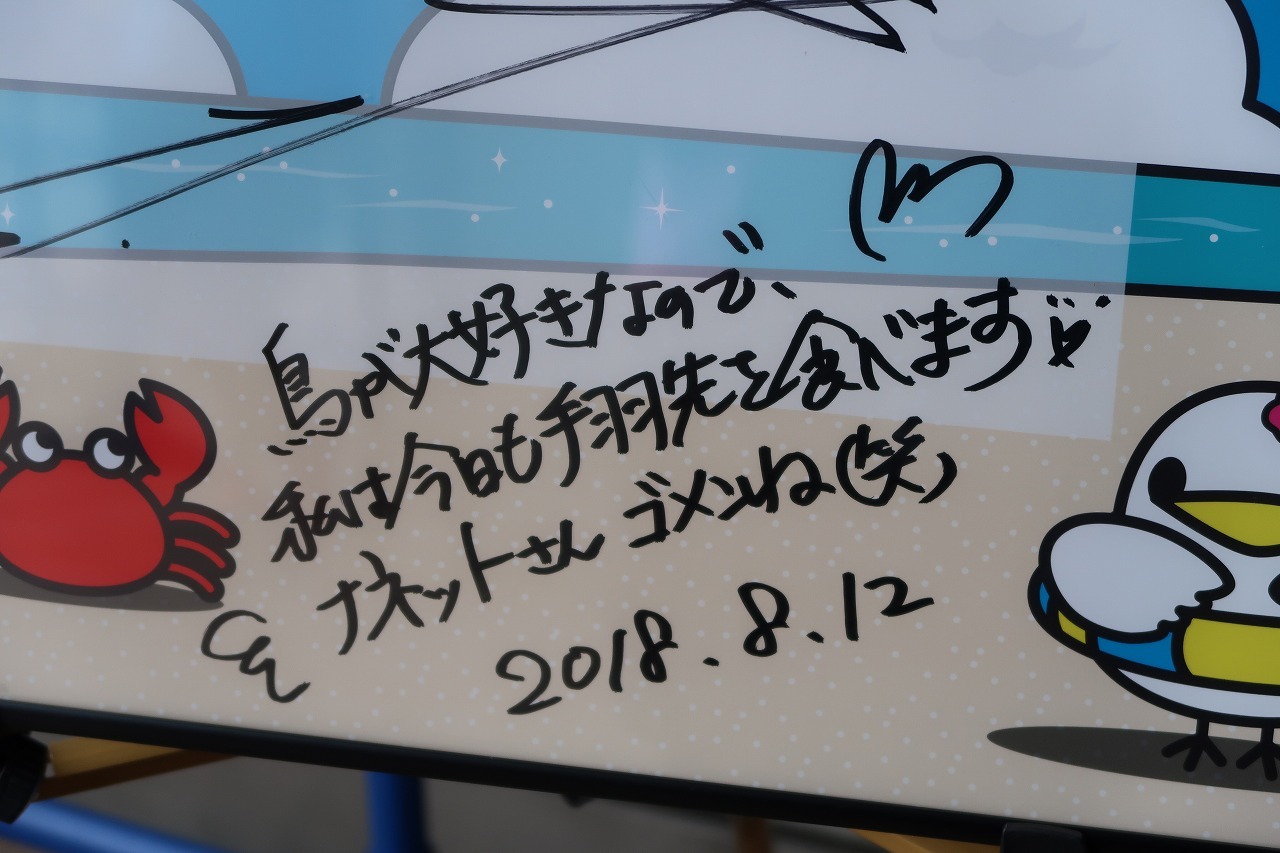 鳥が大好きなので、
私は今日も手羽先を食べます♡
ナネットさん ゴメンね(笑)
2018.8.12